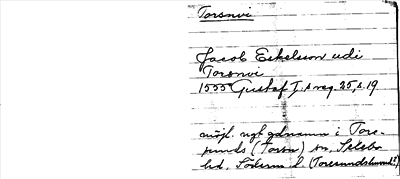 Torsnvi
Jacob Eskelsson udi
Torsnvi
1555 Gustaf I:s reg. 25, s. 19
möjl. ngt gdnamn i Tore-
sunds (Torsn) sn, Selebo
hd, Söderm. l (Toresundslund?)